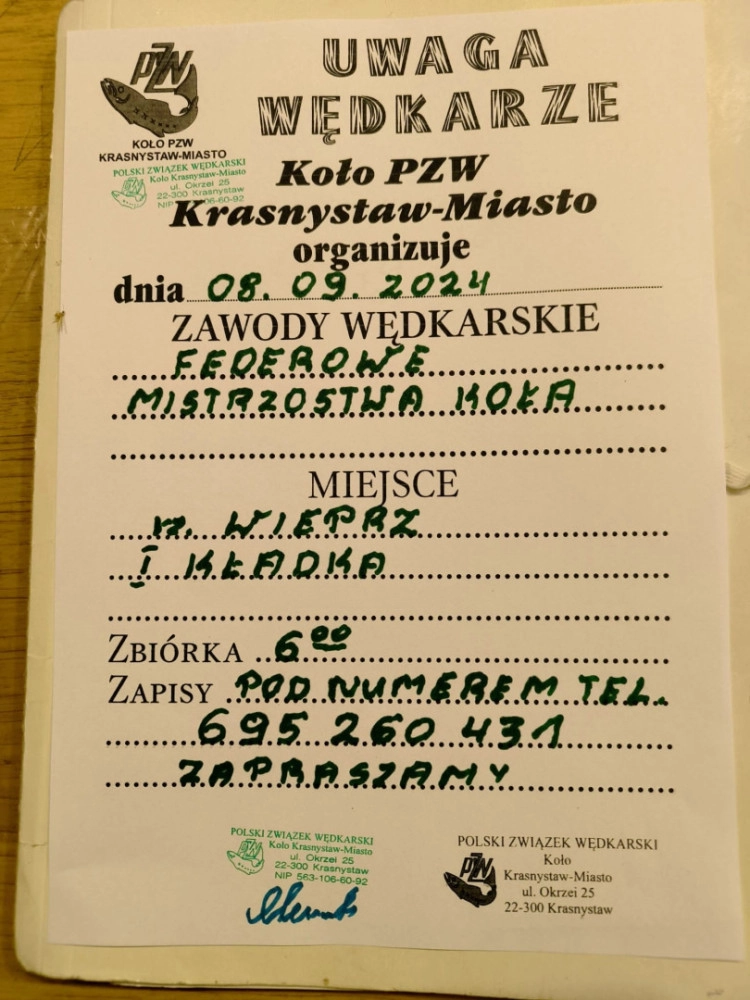 PZW
KOŁO PZW
KRASNYSTAW-MIASTO
POLSKI ZWIĄZEK WĘDKARSKI
Koło Krasnystaw-Miasto
ul. Okrzei 25
22-300 Krasnystaw
NIP 06-60-92
UWAGA
WĘDKARZE
Koło PZW
Krasnystaw-Miasto
organizuje
dnia 08. 09. 2024
ZAWODY WĘDKARSKIE
FEDEROWE
MISTRZOSTWA KOŁA
MIEJSCE
rz. WIEPRZ
I KŁADKA
ZBIÓRKA 6⁰⁰
ZAPISY POD NUMEREM TEL.
695 260 431
ZAPRASZAMY
POLSKI ZWIĄZEK WĘDKARSKI
Koło Krasnystaw-Miasto
ul. Okrzei 25
22-300 Krasnystaw
NIP 563-106-60-92
POLSKI ZWIĄZEK WĘDKARSKI
Koło
PZW
Krasnystaw-Miasto
ul. Okrzei 25
22-300 Krasnystaw